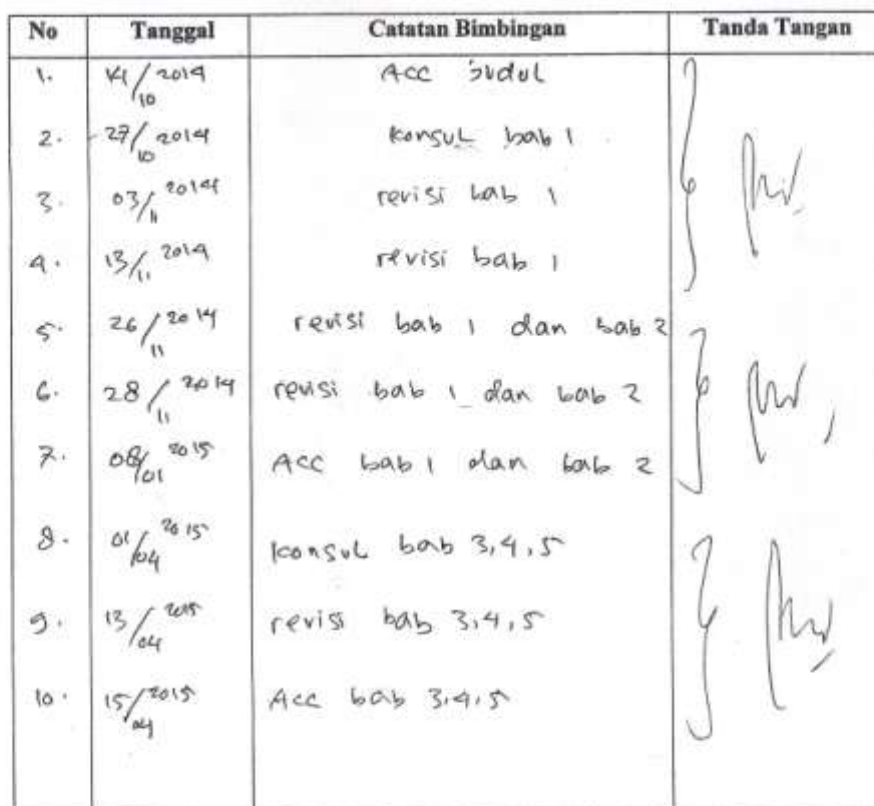 No Tanggal Catatan Bimbingan Tanda Tangan
1. 14/10 2014 Acc Judul
2. 27/10 2014 konsul bab 1
3. 03/11 2014 revisi bab 1
4. 13/11 2014 revisi bab 1
5. 26/11 2014 revisi bab 1 dan bab 2
6. 28/11 2014 revisi bab 1 dan bab 2
7. 08/01 2015 Acc bab 1 dan bab 2
8. 01/04 2015 konsul bab 3,4,5
9. 13/04 2015 revisi bab 3,4,5
10. 15/04 2015 Acc bab 3,4,5